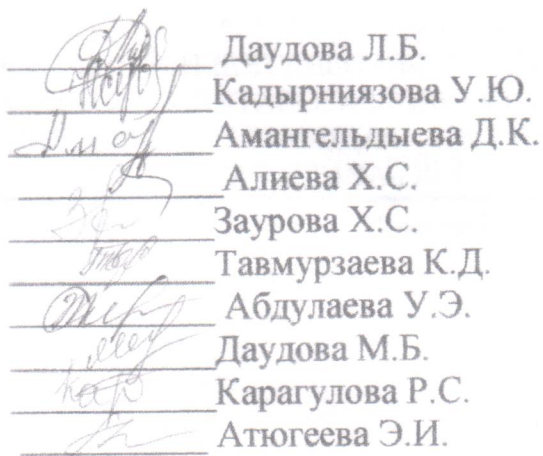 Даудова Л.Б.
Кадырниязова У.Ю.
Амангельдыева Д.К.
Алиева Х.С.
Заурова Х.С.
Тавмурзаева К.Д.
Абдулаева У.Э.
Даудова М.Б.
Карагулова Р.С.
Атюгеева Э.И.